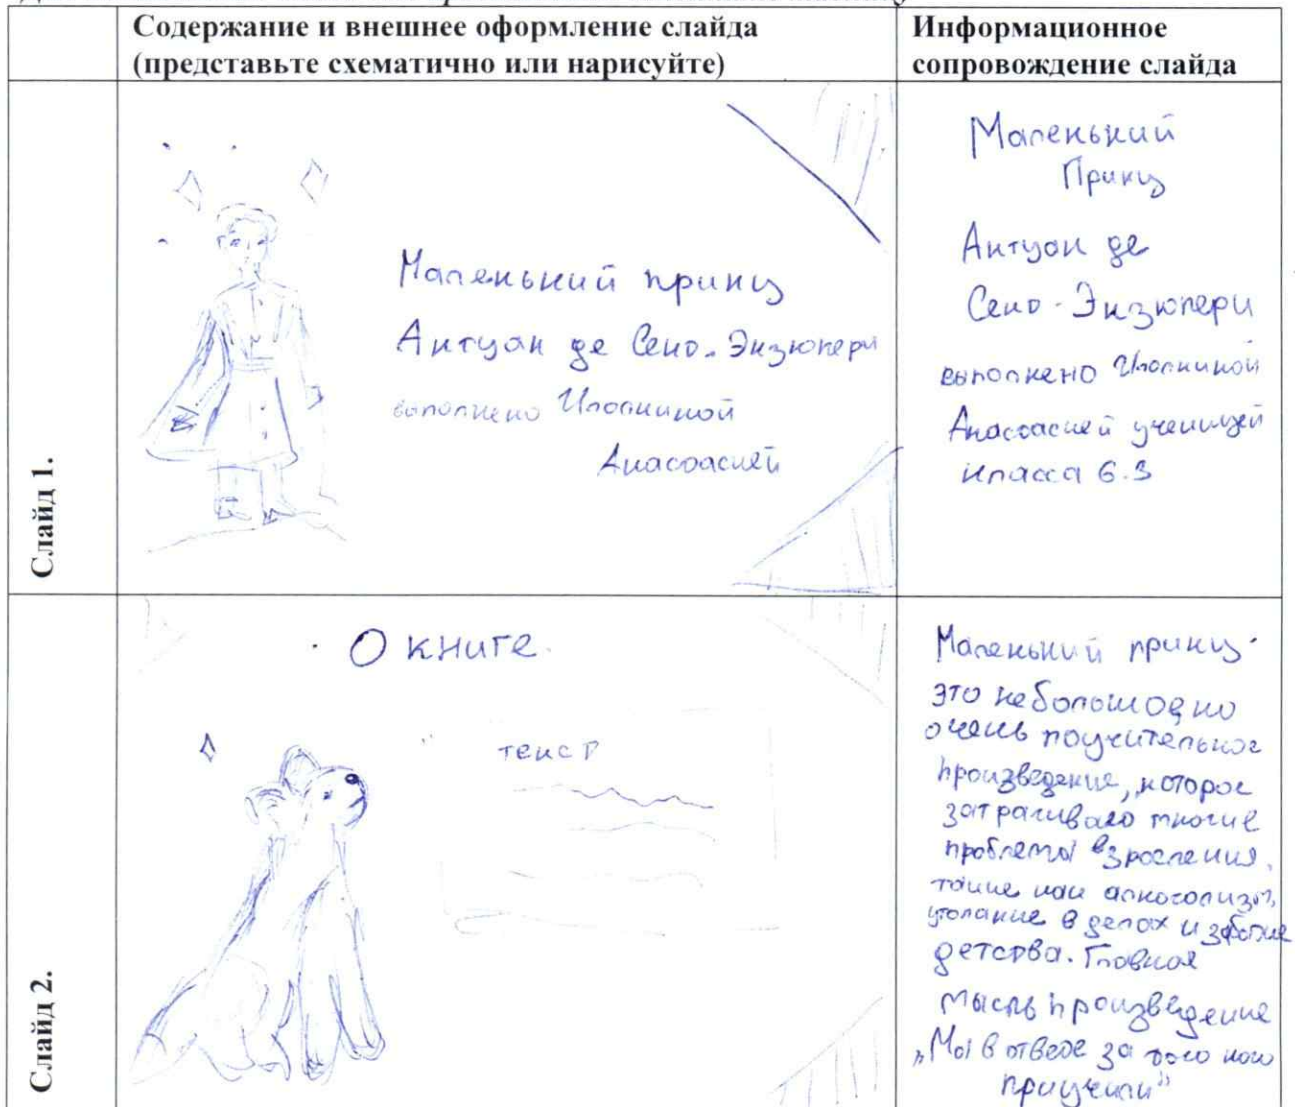 Содержание и внешнее оформление слайда
(представьте схематично или нарисуйте)
Информационное
сопровождение слайда
Слайд 1.
Маленький принц
Антуан де Сент-Экзюпери
выполнено
Анастасией
Маленький
Принц
Антуан де
Сент-Экзюпери
выполнено
Анастасией ученицей
класса 6.3
Слайд 2.
О книге.
текст
Маленький принц -
это небольшое но
очень поучительное
произведение, которое
затрагивает многие
проблемы взросления,
такие как алкоголизм,
утопание в делах и забытие
детства. Главная
мысль произведение
„Мы в ответе за того кого
приучили"